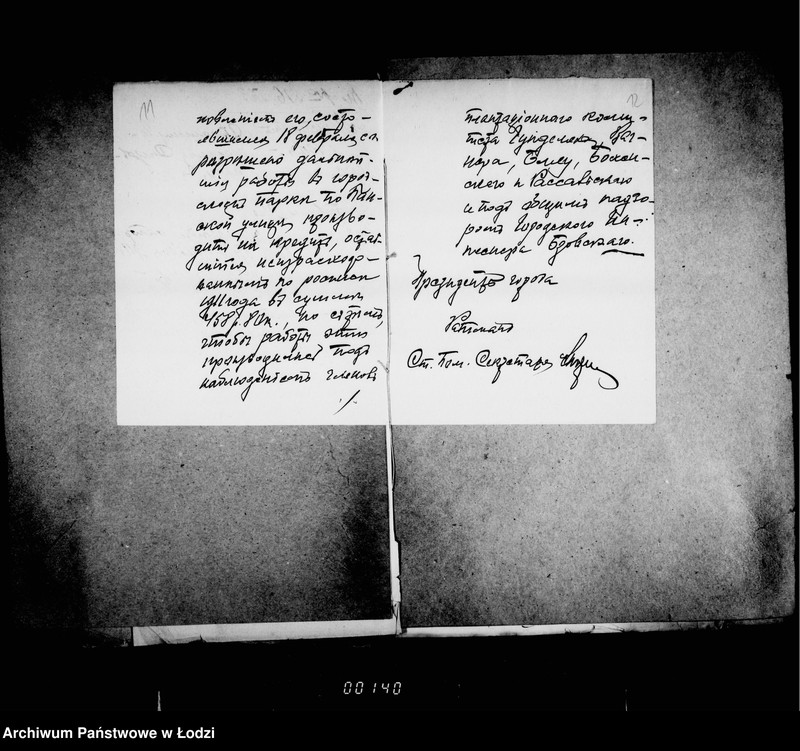 11
новленiемъ его, состо-
явшимся 18 февраля с.г.
разрешено дальнѣй-
шiя работы въ город-
скомъ паркѣ по Пан-
ской улицѣ произво-
дить на кредитъ, остав-
шiйся неизрасходо-
ваннымъ по росписи
1911 года въ суммѣ
458 р. 80 к., но съ тѣмъ,
чтобы работы эти
производились подъ
наблюденiемъ членовъ
./.
12
плантацiоннаго коми-
тета Гунделаха, Ваг-
нера,
и Рассальскаго
и подъ общимъ надзо-
ромъ Городского Ин-
женера Бровскаго.
Президентъ города
Ст. Пом. Секретаря
00140
Archiwum Państwowe w Łodzi